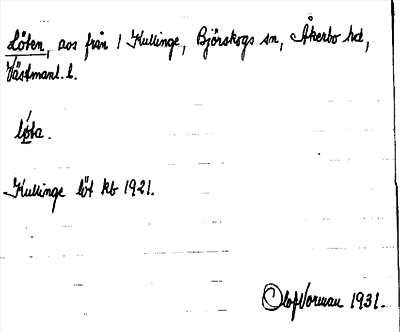 Löten, aos från 1 Kullinge, Björskogs sn, Åkerbo hd,
Västmanl. l.
löta.
Kullinge löt kb 1921.
Olof Vorman 1931.